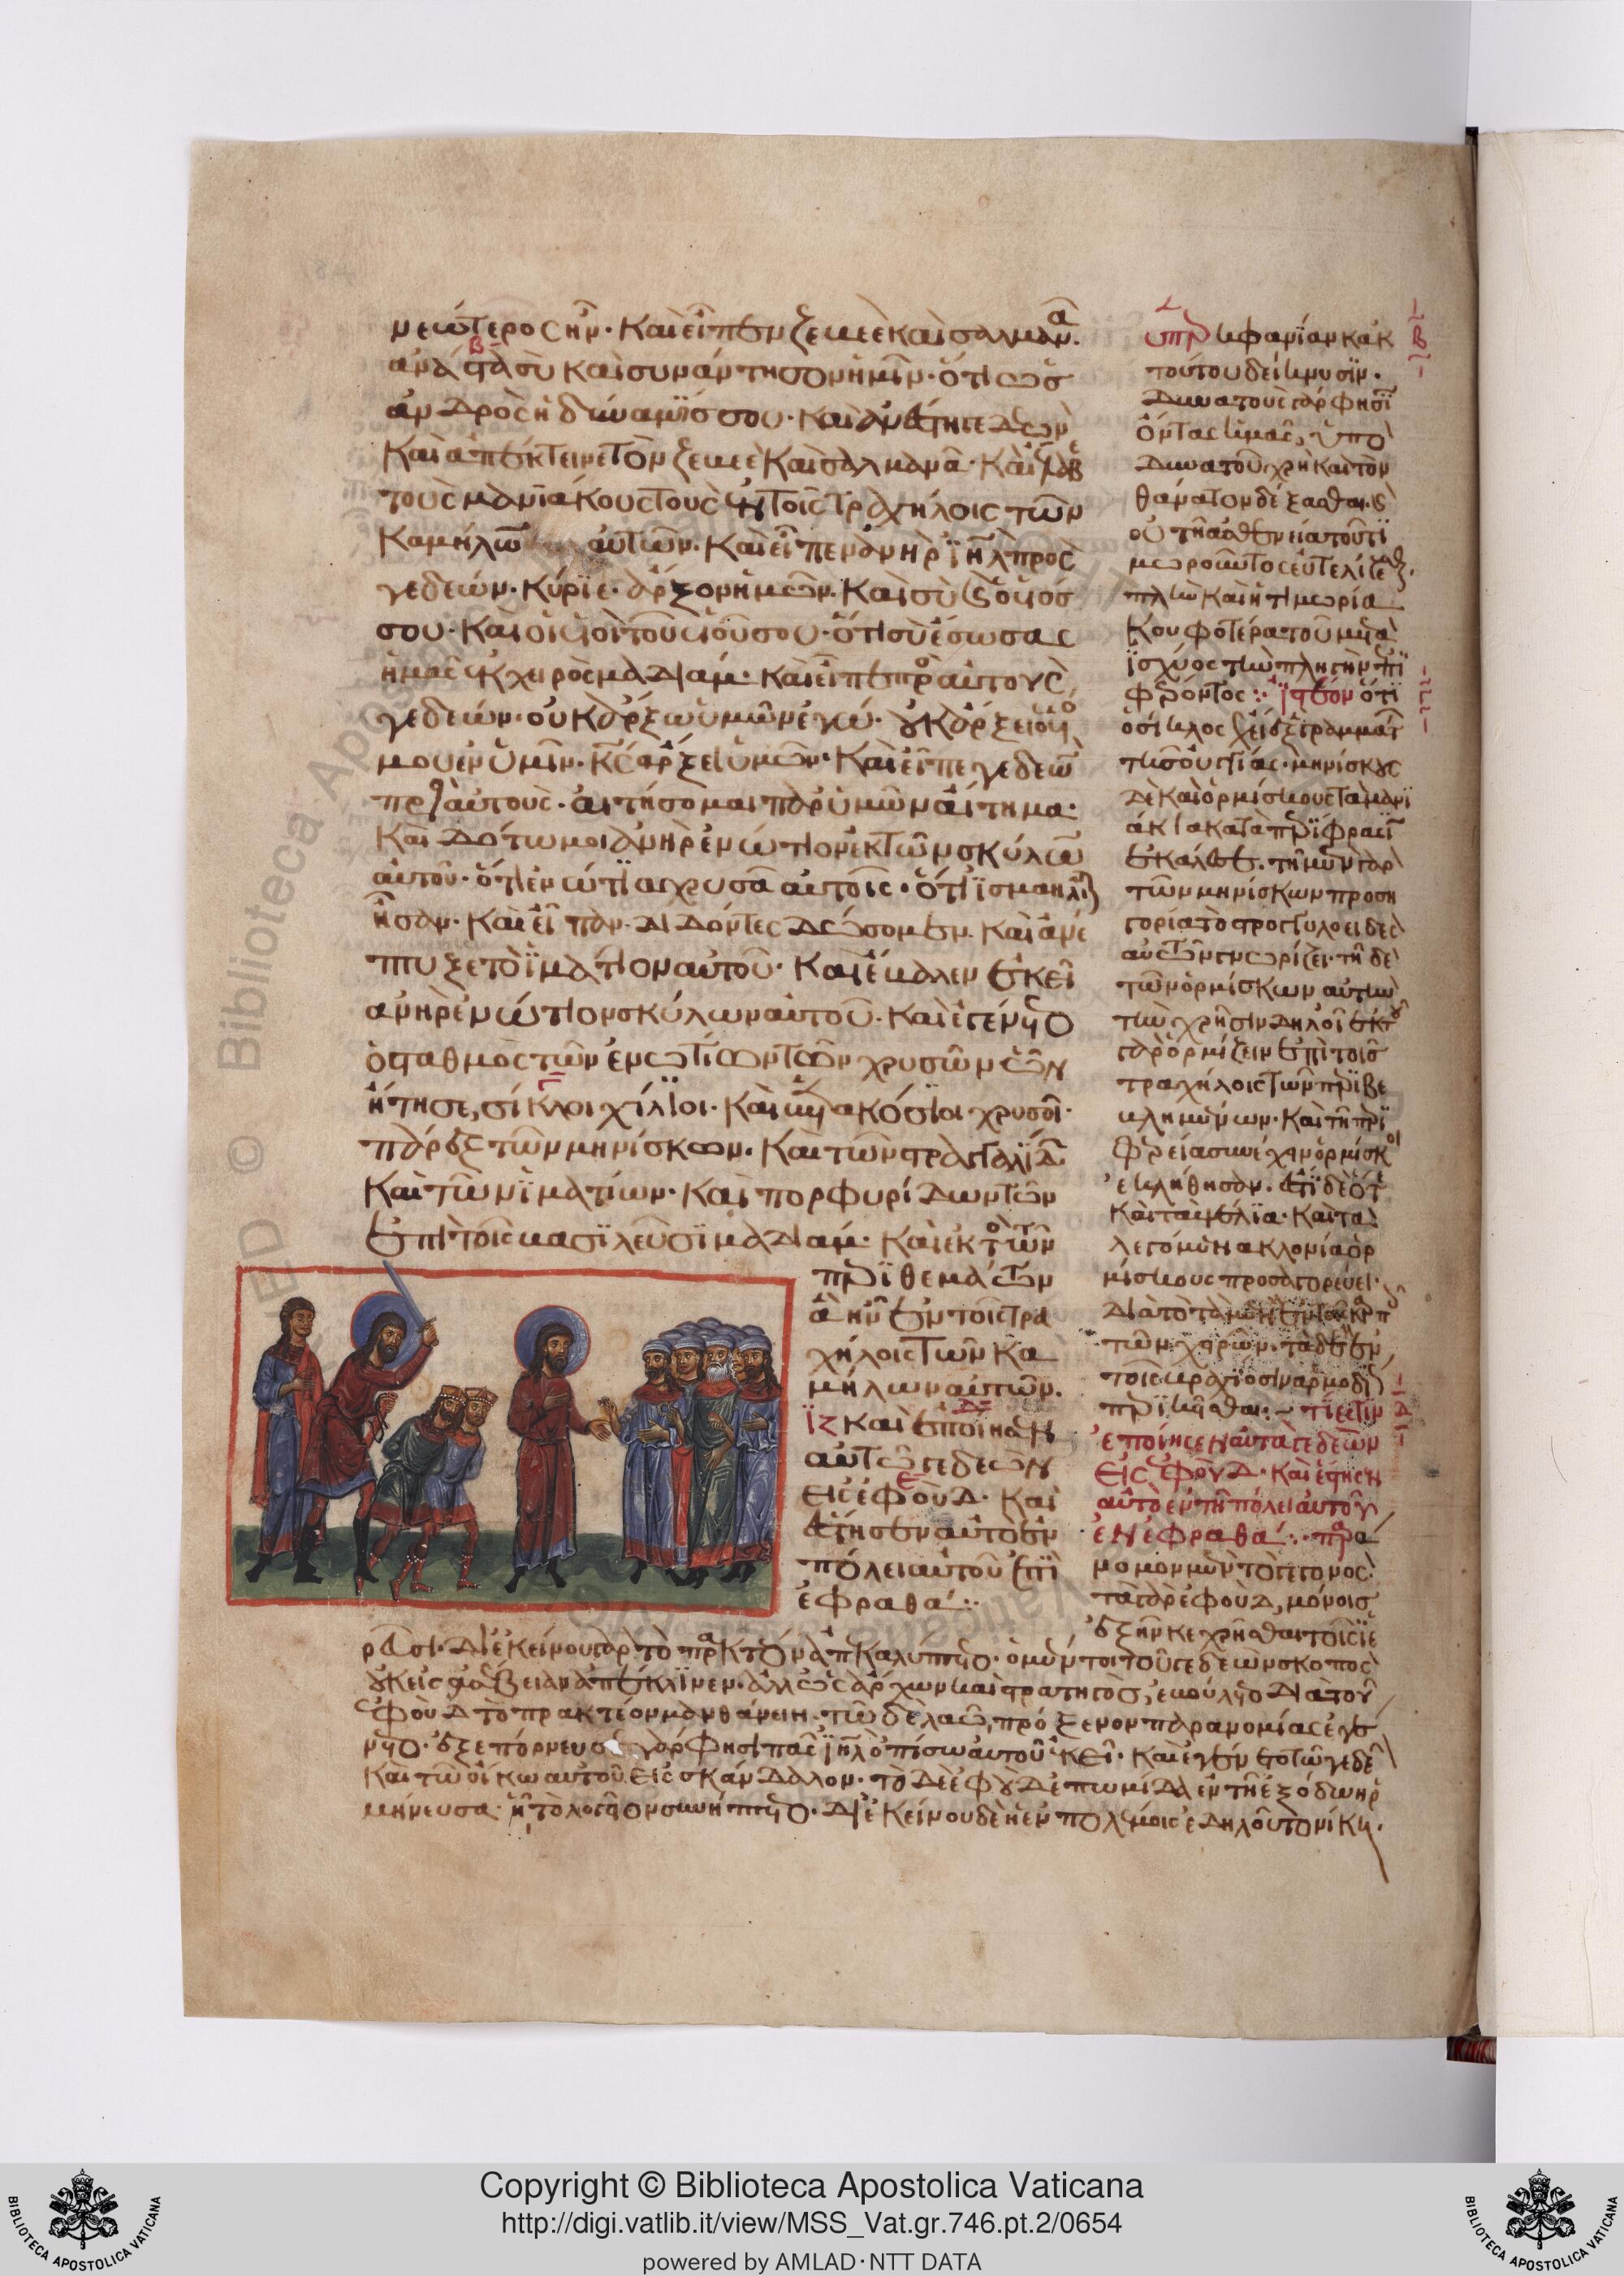 νεώτερος ἦν· καὶ εἶπεν ζεβεὲ καὶ σαλμανᾶ.
ἀνάστα σὺ καὶ συνάντησον ἡμῖν· ὅτι ὡς
ἀνδρὸς ἡ δύναμίς σου· καὶ ἀνέστη γεδεὼν
καὶ ἀπέκτεινε τὸν ζεβεὲ καὶ σαλμανᾶ· καὶ ἔλαβε
τοὺς μανιάκους τοὺς ἐν τοῖς τραχήλοις τῶν
καμήλων αὐτῶν· καὶ εἶπεν ἀνὴρ ιηλ πρὸς
γεδεών· κύριε· ἄρξον ἡμῶν· καὶ σὺ καὶ ὁ υἱός
σου· καὶ οἱ υἱοὶ τοῦ υἱοῦ σου· ὅτι σὺ ἔσωσας
ἡμᾶς ἐκ χειρὸς μαδιάμ· καὶ εἶπεν πρὸς αὐτοὺς
γεδεών· οὐκ ἄρξω ὑμῶν ἐγώ· οὐκ ἄρξει ὁ υἱός
μου ἐν ὑμῖν· κς ἄρξει ὑμῶν· καὶ εἶπε γεδεὼν
πρὸς αὐτούς· αἰτήσομαι παρ' ὑμῶν αἴτημα·
καὶ δότω μοι ἀνὴρ ἐνώτιον ἐκ τῶν σκύλων
αὐτοῦ· ὅτι ἐνώτια χρυσᾶ αὐτοῖς· ὅτι ἰσμαηλῖται
ἦσαν· καὶ εἶπαν· διδόντες δώσομεν· καὶ ἀνέ
πτυξε τὸ ἱμάτιον αὐτοῦ· καὶ ἔβαλεν ἐκεῖ
ἀνὴρ ἐνώτιον σκύλων αὐτοῦ· καὶ ἐγένετο
ὁ σταθμὸς τῶν ἐνωτίων τῶν χρυσῶν ὧν
ᾔτησε, σίκλοι χίλιοι· καὶ ἑπτακόσιοι χρυσοῖ·
πάρεξ τῶν μηνίσκων· καὶ τῶν στραγγαλίδων
καὶ τῶν ἱματίων· καὶ πορφυρίδων τῶν
ἐπὶ τοῖς βασιλεῦσι μαδιάμ· καὶ ἐκτὸς τῶν
περιθεμάτων
ἃ ἦν ἐν τοῖς τρα
χήλοις τῶν κα
μήλων αὐτῶν.
ιζ καὶ ἐποίησεν
αὐτὸ γεδεὼν
εἰς ἐφούδ· καὶ
ἔστησεν αὐτὸ ἐν
πόλει αὐτοῦ ἐπὶ
ἐφραθά:·
πούτου δείκνυσιν·
δυνατοὺς γὰρ φησὶ
ὄντας ἡμᾶς, ὑπὸ
δυνατοῦ χρὴ καὶ τὸν
θάνατον δέξασθαι·
πλὴν καὶ ἡ τιμωρία
κουφοτέρα τοῦ μετὰ
ἰσχύος τὴν πληγὴν ἐπι
φέροντος:· ἰστέον ὅτι
τῆς οὐγγίας· μηνίσκους
δὲ καὶ ὁρμίσκους τὰ μανι
άκια κατὰ περίφρασιν
ἐκάλεσε· τῇ μὲν γὰρ
τῶν μηνίσκων προση
γορίᾳ τὸ στρογγυλοειδὲς
αὐτῶν γνωρίζει· τῇ δὲ
τῶν ὁρμίσκων αὐτὴν
τὴν χρῆσιν δηλοῖ ἐκ τοῦ
γὰρ ὁρμίζειν ἐπὶ τοῖς
τραχήλοις τῶν περιβε
βλημένων· καὶ τῇ περι
φερείᾳ συνέχειν ὁρμίσκοι
ἐκλήθησαν· ἔτι δὲ ὅτε
καὶ τὰ ψέλια· καὶ τὰ
λεγόμενα κλονία ὁρ
μίσκους προσαγορεύει·
τῶν χειρῶν· τὰ δὲ ἐν
τοῖς βραχίοσιν ἁρμόδι
περικεῖσθαι:~ τί ἐστιν
ἐποίησεν αὐτὰ γεδεὼν
εἰς ἐφούδ· καὶ ἔστησεν
αὐτὸ ἐν τῇ πόλει αὐτοῦ
ἐν ἐφραθά:· παρά
νομον μὲν τὸ γεγονός·
τὰ γὰρ ἐφούδ, μόνοις
ἐξῆν κεχρῆσθαι τοῖς ἱε
ρεῦσι· δι' ἐκείνου γὰρ τὸ πρακτέον ἀπεκαλύπτετο· ὁ μέντοι τοῦ γεδεὼν σκοπὸς
οὐκ εἰς ἀσέβειαν ἀπέκλινεν· ἀλλ' ὡς ἄρχων καὶ στρατηγός, ἐβούλετο διὰ τοῦ
ἐφοὺδ τὸ πρακτέον μανθάνειν· τῷ δὲ λαῷ, πρόξενον παρανομίας ἐγέ
νετο· ἐξεπόρνευσε γὰρ φησὶ πᾶς ιηλ ὀπίσω αὐτοῦ ἐκεῖ· καὶ ἐγένετο τῷ γεδεὼν
καὶ τῷ οἴκῳ αὐτοῦ εἰς σκάνδαλον· τὸ δὲ ἐφοὺδ ἐπωμίδα ἐν τῇ ἐξόδῳ ἡρ
μήνευσα· ᾗ τὸ λογεῖον συνῆπτο· δι' ἐκείνου δὲ ἡ ἐν πολέμοις ἐδηλοῦτο νίκη.
Copyright © Biblioteca Apostolica Vaticana
http://digi.vatlib.it/view/MSS_Vat.gr.746.pt.2/0654
powered by AMLAD·NTT DATA
BIBLIOTECA APOSTOLICA VATICANA
BIBLIOTECA APOSTOLICA VATICANA